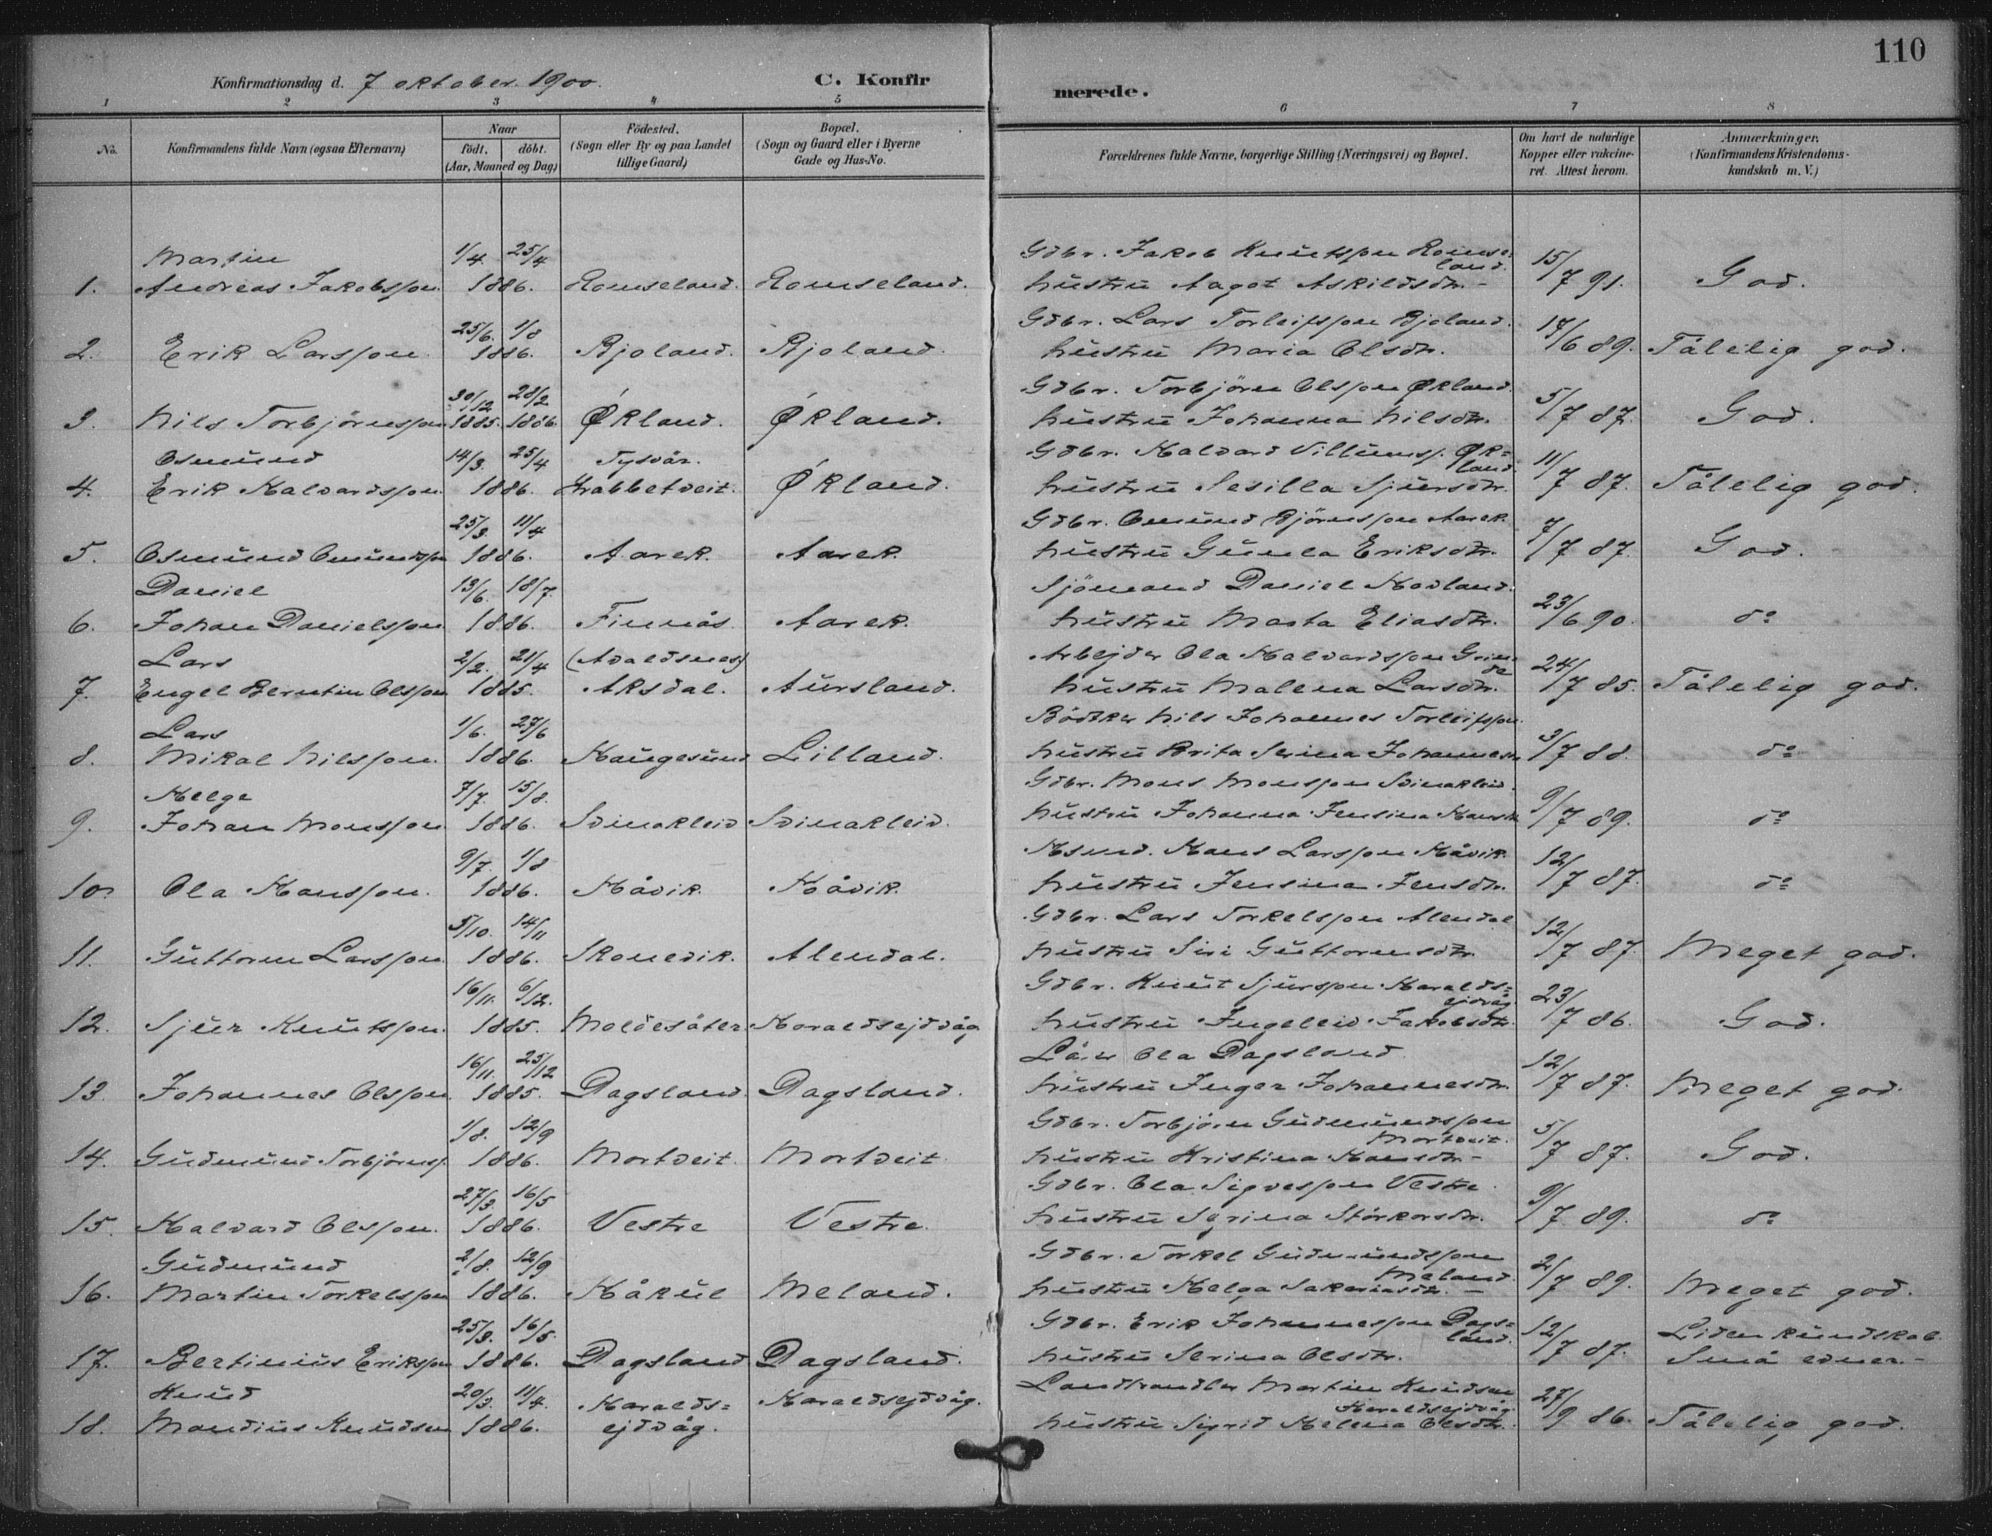 110
Konfirmationsdag d. 7 oktober 1900.
C. Konfirmerede.
1 2 3 4 5 6 7 8
No.
Konfirmandens fulde Navn (ogsaa Efternavn)
Naar
födt. döbt.
(Aar, Maaned og Dag)
Födested.
(Sogn eller By og paa Landet
tillige Gaard)
Bopæl.
(Sogn og Gaard eller i Byerne
Gade og Hus-No.
Forældrenes fulde Navne, borgerlige Stilling (Næringsvei) og Bopæl.
Om havt de naturlige
Kopper eller vakcine-
ret. Attest herom.
Anmærkninger.
(Konfirmandens Kristendoms-
kundskab m. V.)
Martin 1/4 25/4 Gdbr. Jakob Knutsson Romse-
land.
1. Andreas Jakobsson 1886. Romseland. Romseland. hustru Aagot Askildsdtr. - 15/7 91. God.
25/6. 1/8 Gdbr. Lars Torleifsson Bjoland.
2. Erik Larsson. 1886. Bjoland. Bjoland. hustru Maria Olsdtr. 17/6 89. Tålelig god.
30/12 28/2 Gdbr. Torbjörn Olsson Økland.
3. Nils Torbjörnsson 1885. 1886. Økland. Økland. hustru Johanna Nilsdtr. 5/7 87. God.
Osmund 14/3. 25/4 Tysvär. Gdbr. Halvard Villumss. Øk-
land.
4. Erik Halvardsson. 1886. Krabbetveit. Økland. hustru Sesilla Sjursdtr. 11/7 87. Tålelig god.
25/3. 11/4 Gdbr. Omund Bjørnsson Aarek
5. Osmund Omundsson 1886. Aarek. Aarek. hustru Gunla Eriksdtr. 7/7 87. God.
Daniel 13/6. 18/7. Sjömand Daniel Hovland.
6. Johan Danielsson 1886. Finnås. Aarek. hustru Marta Eliasdtr. 23/6 90. do
Lars 2/2. 21/4 (Avaldsnes) Arbejder Ola Halvardsson Grin-
de
7. Engel Berntin Olsson 1885. Aksdal. Aursland. hustru Malena Larsdtr. 24/7 85. Tålelig god.
Lars 1/6. 27/6 Bödker Nils Johannes Torleifsson
8. Mikal Nilsson. 1886. Haugesund Lilland. hustru Brita Serina Johannesdtr 3/7 88. do
Helge 7/7. 15/8. Gdbr. Mons Monsson Svinakleiv.
9. Johan Monsson 1886. Svinakleiv Svinakleiv. hustru Johanna Jensina Hansdtr 9/7 89. do
9/7 1/8 Hsmd. Hans Larsson Håvik.
10. Ola Hansson. 1886. Håvik. Håvik. hustru Jensina Jensdtr. 12/7 87. do
5/10. 14/11 Gdbr. Lars Torkelsson Alendal
11. Guttorm Larsson 1886. Skonevik. Alendal. hustru Siri Guttormsdtr. 12/7 87. Meget god.
16/11. 6/12. Gdbr. Knut Sjursson Haralds-
ejdvåg
12. Sjur Knutsson. 1885. Moldesäter Haraldsejdvåg hustru Ingeleiv Jakobsdtr. 23/7 86. God.
16/11. 25/12 Lärer Ola Dagsland
13. Johannes Olsson 1885. Dagsland. Dagsland. hustru Inger Johannesdtr. 12/7 87. Meget god.
1/8. 12/9 Gdbr. Torbjörn Gudmundsson
Mortveit.
14. Gudmund Torbjörnss. 1886. Mortveit. Mortveit. hustru Kristina Hansdtr. - 5/7 87. God.
27/3. 16/5 Gdbr. Ola Sigvesson Vestre.
15. Halvard Olsson. 1886. Vestre Vestre. hustru Serina Störkorsdtr. 9/7 89. do
Gudmund 2/8. 12/9 Gdbr. Torkel Gudmundsson
Meland.
16. Martin Torkelsson 1886. Håkul Meland. hustru Helga Sakariasdtr. - 2/7 89. Meget god.
25/3. 16/5. Gdbr. Erik Johannesson Dags-
land. Liden kundskab.
17. Bertinius Eriksson 1886. Dagsland Dagsland. hustru Serina Olsdtr. 12/7 87. Små evner. -
Knud 20/3. 11/4. Haralds- Haraldsejdvåg. Landhandler Martin Knudsen
Haraldsejdvåg.
18. Mandius Knudsen 1886. ejdvåg. hustru Sigrid Helena Olsdtr. 27/9 86. Tålelig god.